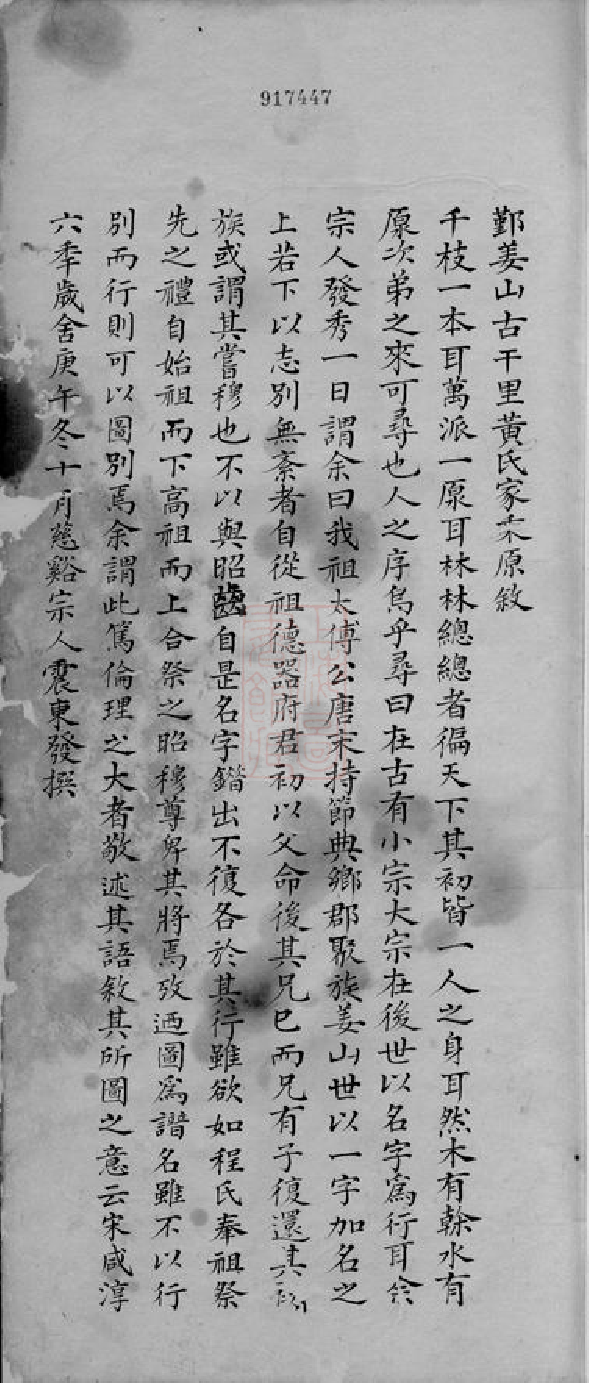 917447
鄞姜山古干里黃氏家乘原敘
千枝一本耳萬派一原耳林林總總者徧天下其初皆一人之身耳然木有榦水有
原次弟之來可尋也人之序烏乎尋曰在古有小宗大宗在後世以名字爲行耳
宗人發秀一日謂余曰我祖太傅公唐末持節典鄉郡聚族姜山世以一字加名之
上若下以志別無紊者自從祖德器府君初以父命後其兄已而兄有子復還其初
族或謂其嘗穆也不以與昭齒自是名字錯出不復各於其行雖欲如程氏奉祖祭
先之禮自始祖而下高祖而上合祭之昭穆尊卑其將焉攷迺圖爲譜名雖不以行
別而行則可以圖別焉余謂此篤倫理之大者敬述其語敘其所圖之意云宋咸淳
六季歲舍庚午冬十月慈谿宗人震東發撰